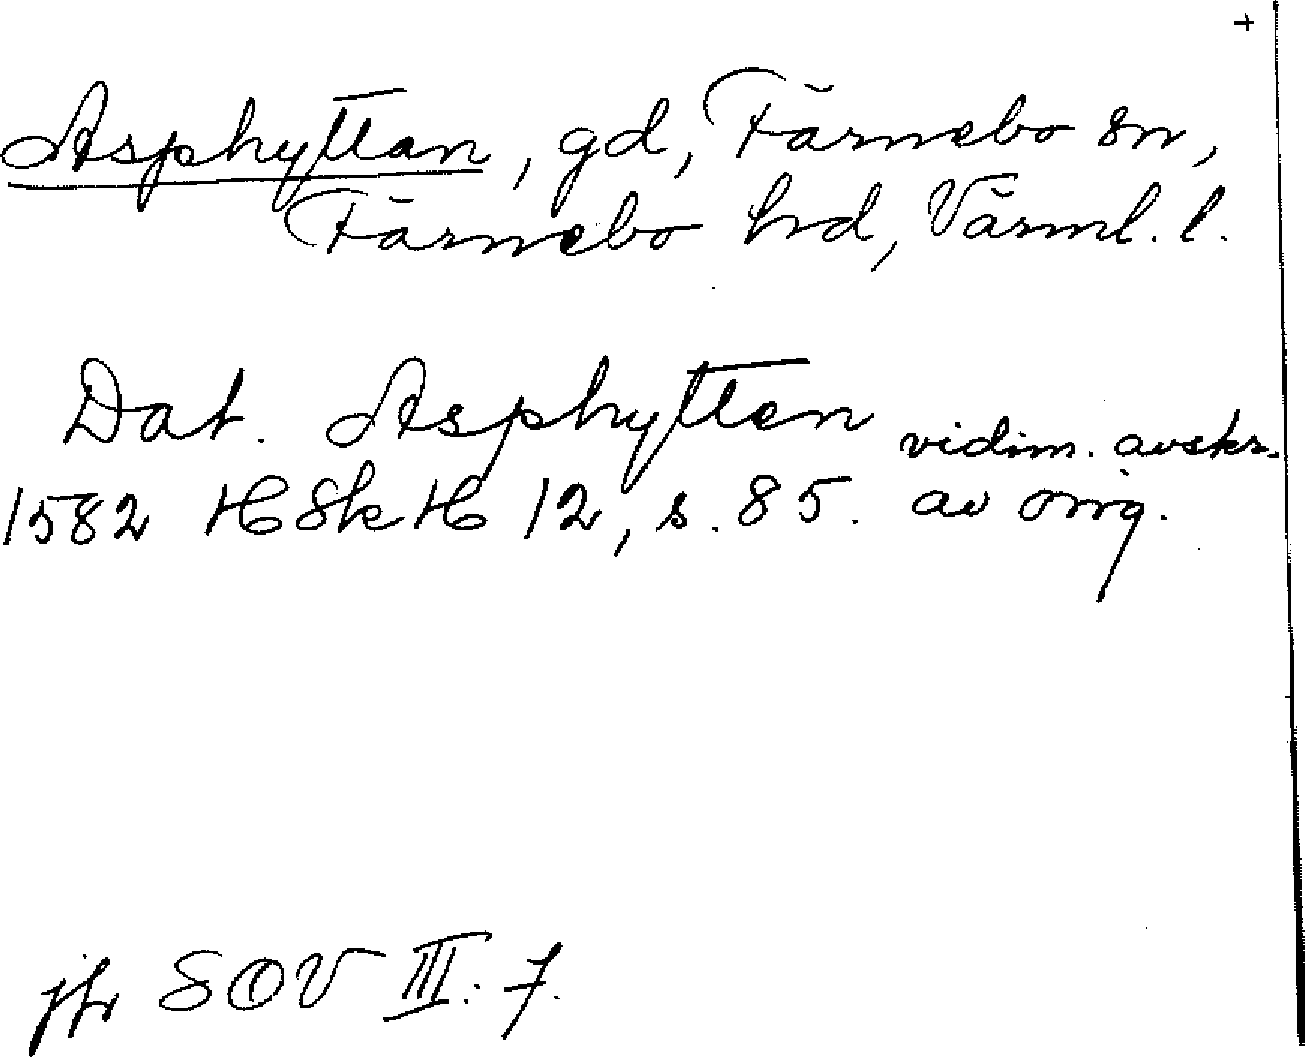 +
Asphyttan, gd, Färnebo sn,
Färnebo hd, Värml. l.
Dat. Asphytten vidim. avskr.
1582 HSkH 12, s. 85. av orig.
jfr SOV III: 7.